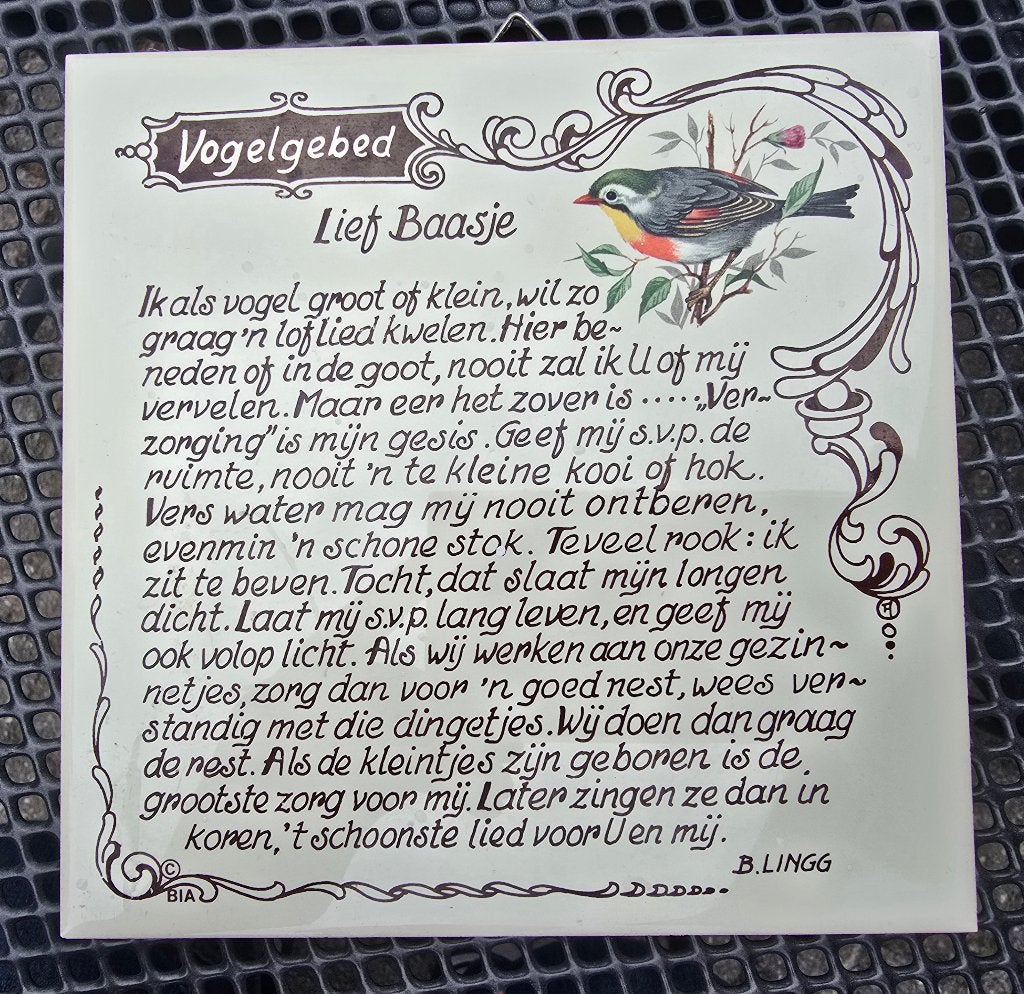 Vogelgebed
Lief Baasje
Ik als vogel groot of klein, wil zo
graag 'n loflied kwelen. Hier be~
neden of in de goot, nooit zal ik U of mij
vervelen. Maar eer het zover is ..... „Ver~
zorging" is mijn gesis. Geef mij s.v.p. de
ruimte, nooit 'n te kleine kooi of hok.
Vers water mag mij nooit ontberen,
evenmin 'n schone stok. Teveel rook: ik
zit te beven. Tocht, dat slaat mijn longen
dicht. Laat mij s.v.p. lang leven, en geef mij
ook volop licht. Als wij werken aan onze gezin~
netjes, zorg dan voor 'n goed nest, wees ver~
standig met die dingetjes. Wij doen dan graag
de rest. Als de kleintjes zijn geboren is de
grootste zorg voor mij. Later zingen ze dan in
koren, 't schoonste lied voor U en mij.
B. LINGG
©
BIA